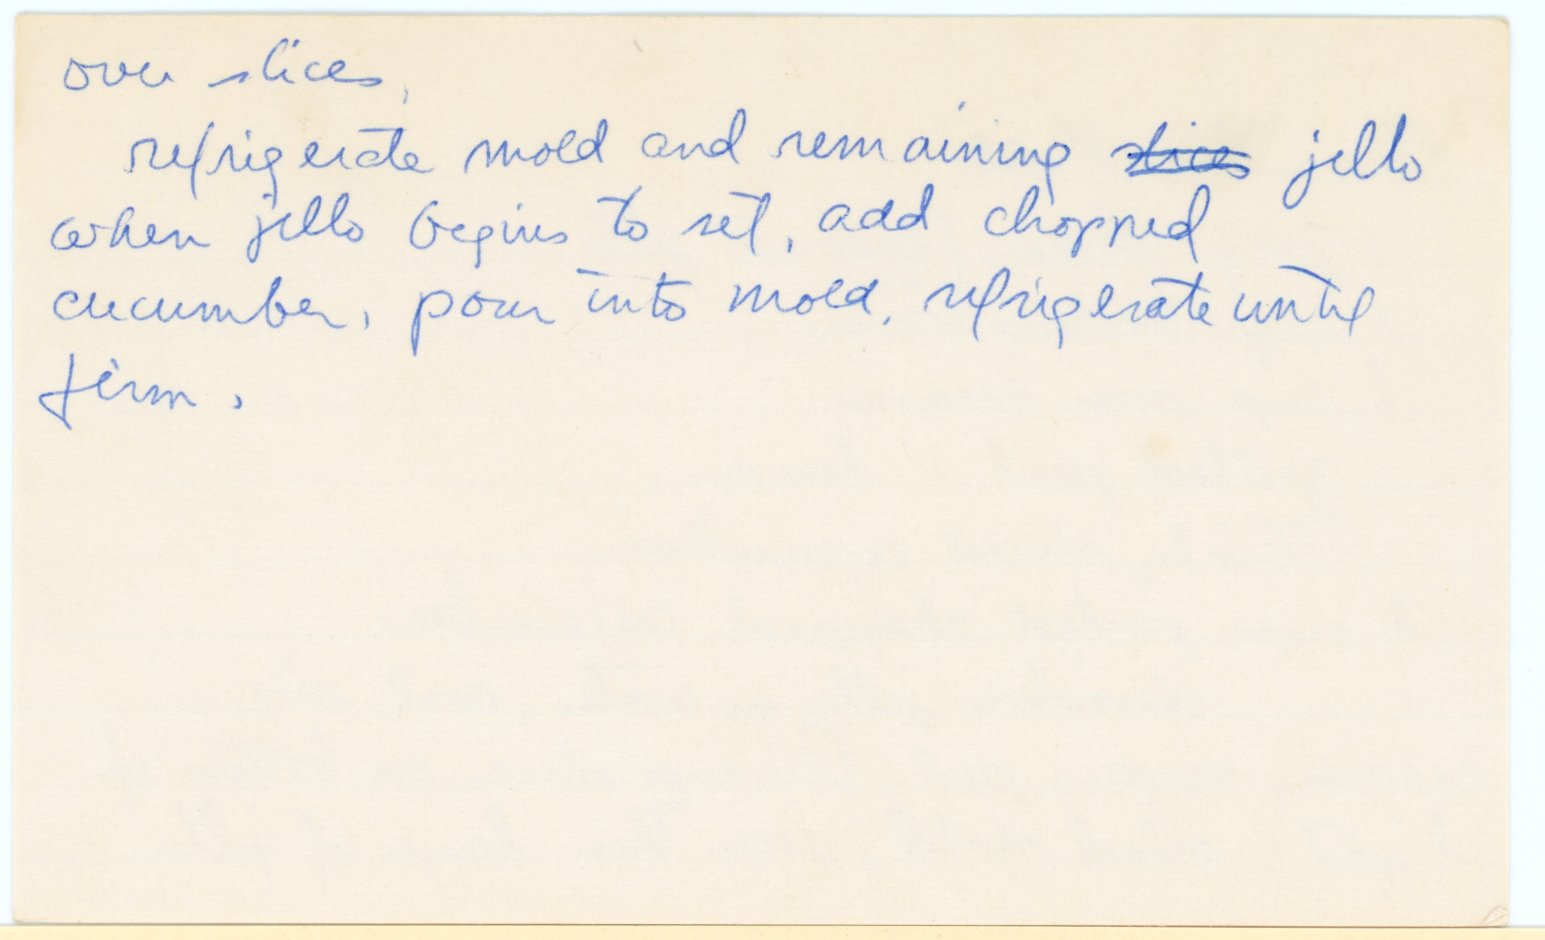 over slices,
refrigerate mold and remaining slices jello
when jello begins to set, add chopped
cucumber, pour into mold, refrigerate until
firm.